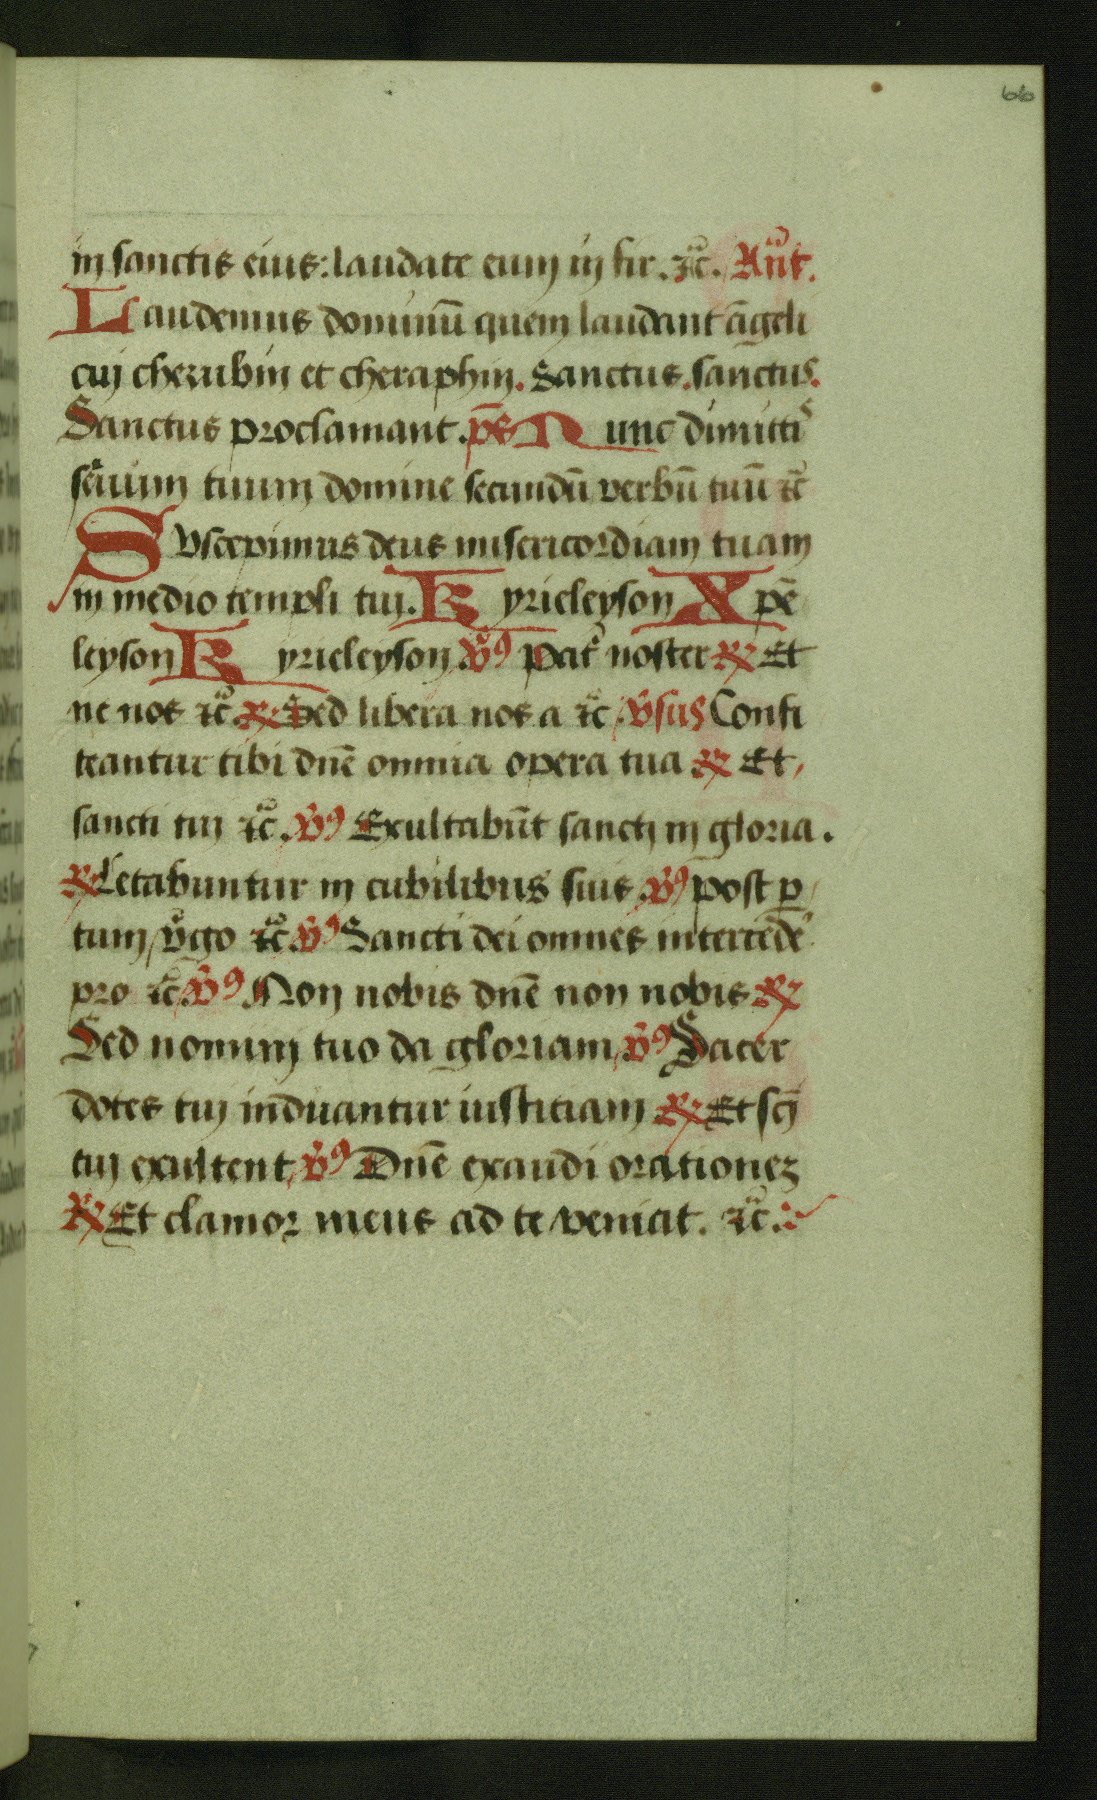 66
in sanctis eius: laudate eum in fir. ꝛc̃. Añt.
Laudemus dominū quem laudant āgeli
cui cherubin et cheraphin. Sanctus. sanctus.
Sanctus proclamant. ps̄ Nunc dimitti᷒
seruum tuum domine secundū verbū tuū ꝛc̃
Suscepimus deus misericordiam tuam
in medio templi tui. Kyrieleyson Xpē
leyson Kyrieleyson ℣ꝰ Pat᷒ noster ℟ Et
ne nos ꝛc̃. ℟ Sed libera nos a ꝛc̃ v̄sus Confi
teantur tibi dn̄e omnia opera tua ℟ Et
sancti tui ꝛc̃. ℣ꝰ Exultabūt sancti in gloria.
℟ Letabuntur in cubilibus suis ℣ꝰ post ꝑ
tum v̓go ꝛc̃. ℣ꝰ Sancti dei omnes intercedē
pro ꝛc̃ ℣ꝰ Non nobis dn̄e non nobis ℟
Sed nomini tuo da gloriam ℣ꝰ Sacer
dotes tui induantur iustitiam ℟ Et sc̄i
tui exultent ℣ꝰ Dn̄e exaudi orationeꝫ
℟ Et clamor meus ad te veniat. ꝛc̃.